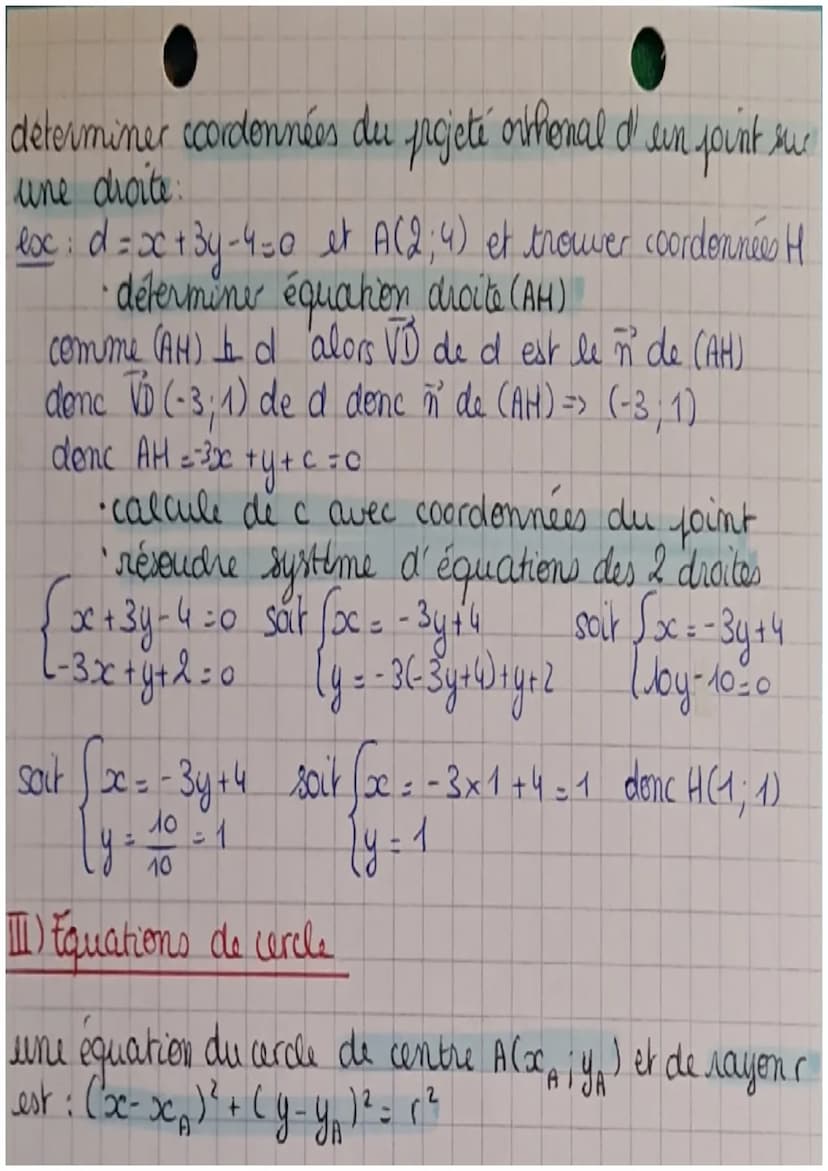 déterminer coordonnées du projeté orthonal d'un point sur
une droite:
ex: d=x+3y-4=0 et A(2;4) et trouver coordonnées H
· déterminer équation droite (AH)
comme (AH) ⊥ d alors VD de d est le n⃗ de (AH)
donc VD⃗(-3;1) de d donc n⃗ de (AH) => (-3;1)
donc AH=-3x+y+c=0
· calcule de c avec coordonnées du point
· résoudre système d'équations des 2 droites
{x+3y-4=0 soit {x=-3y+4 soit {x=-3y+4
{-3x+y+2=0 {y=-3(-3y+4)+y+2 {10y-10=0
soit {x=-3y+4 soit {x=-3×1+4=1 donc H(1;1)
{y=10/10=1 {y=1
III) Equations de cercle
une équation du cercle de centre A(x_A;y_A) et de rayon r
est: (x-x_A)²+(y-y_A)²=r²